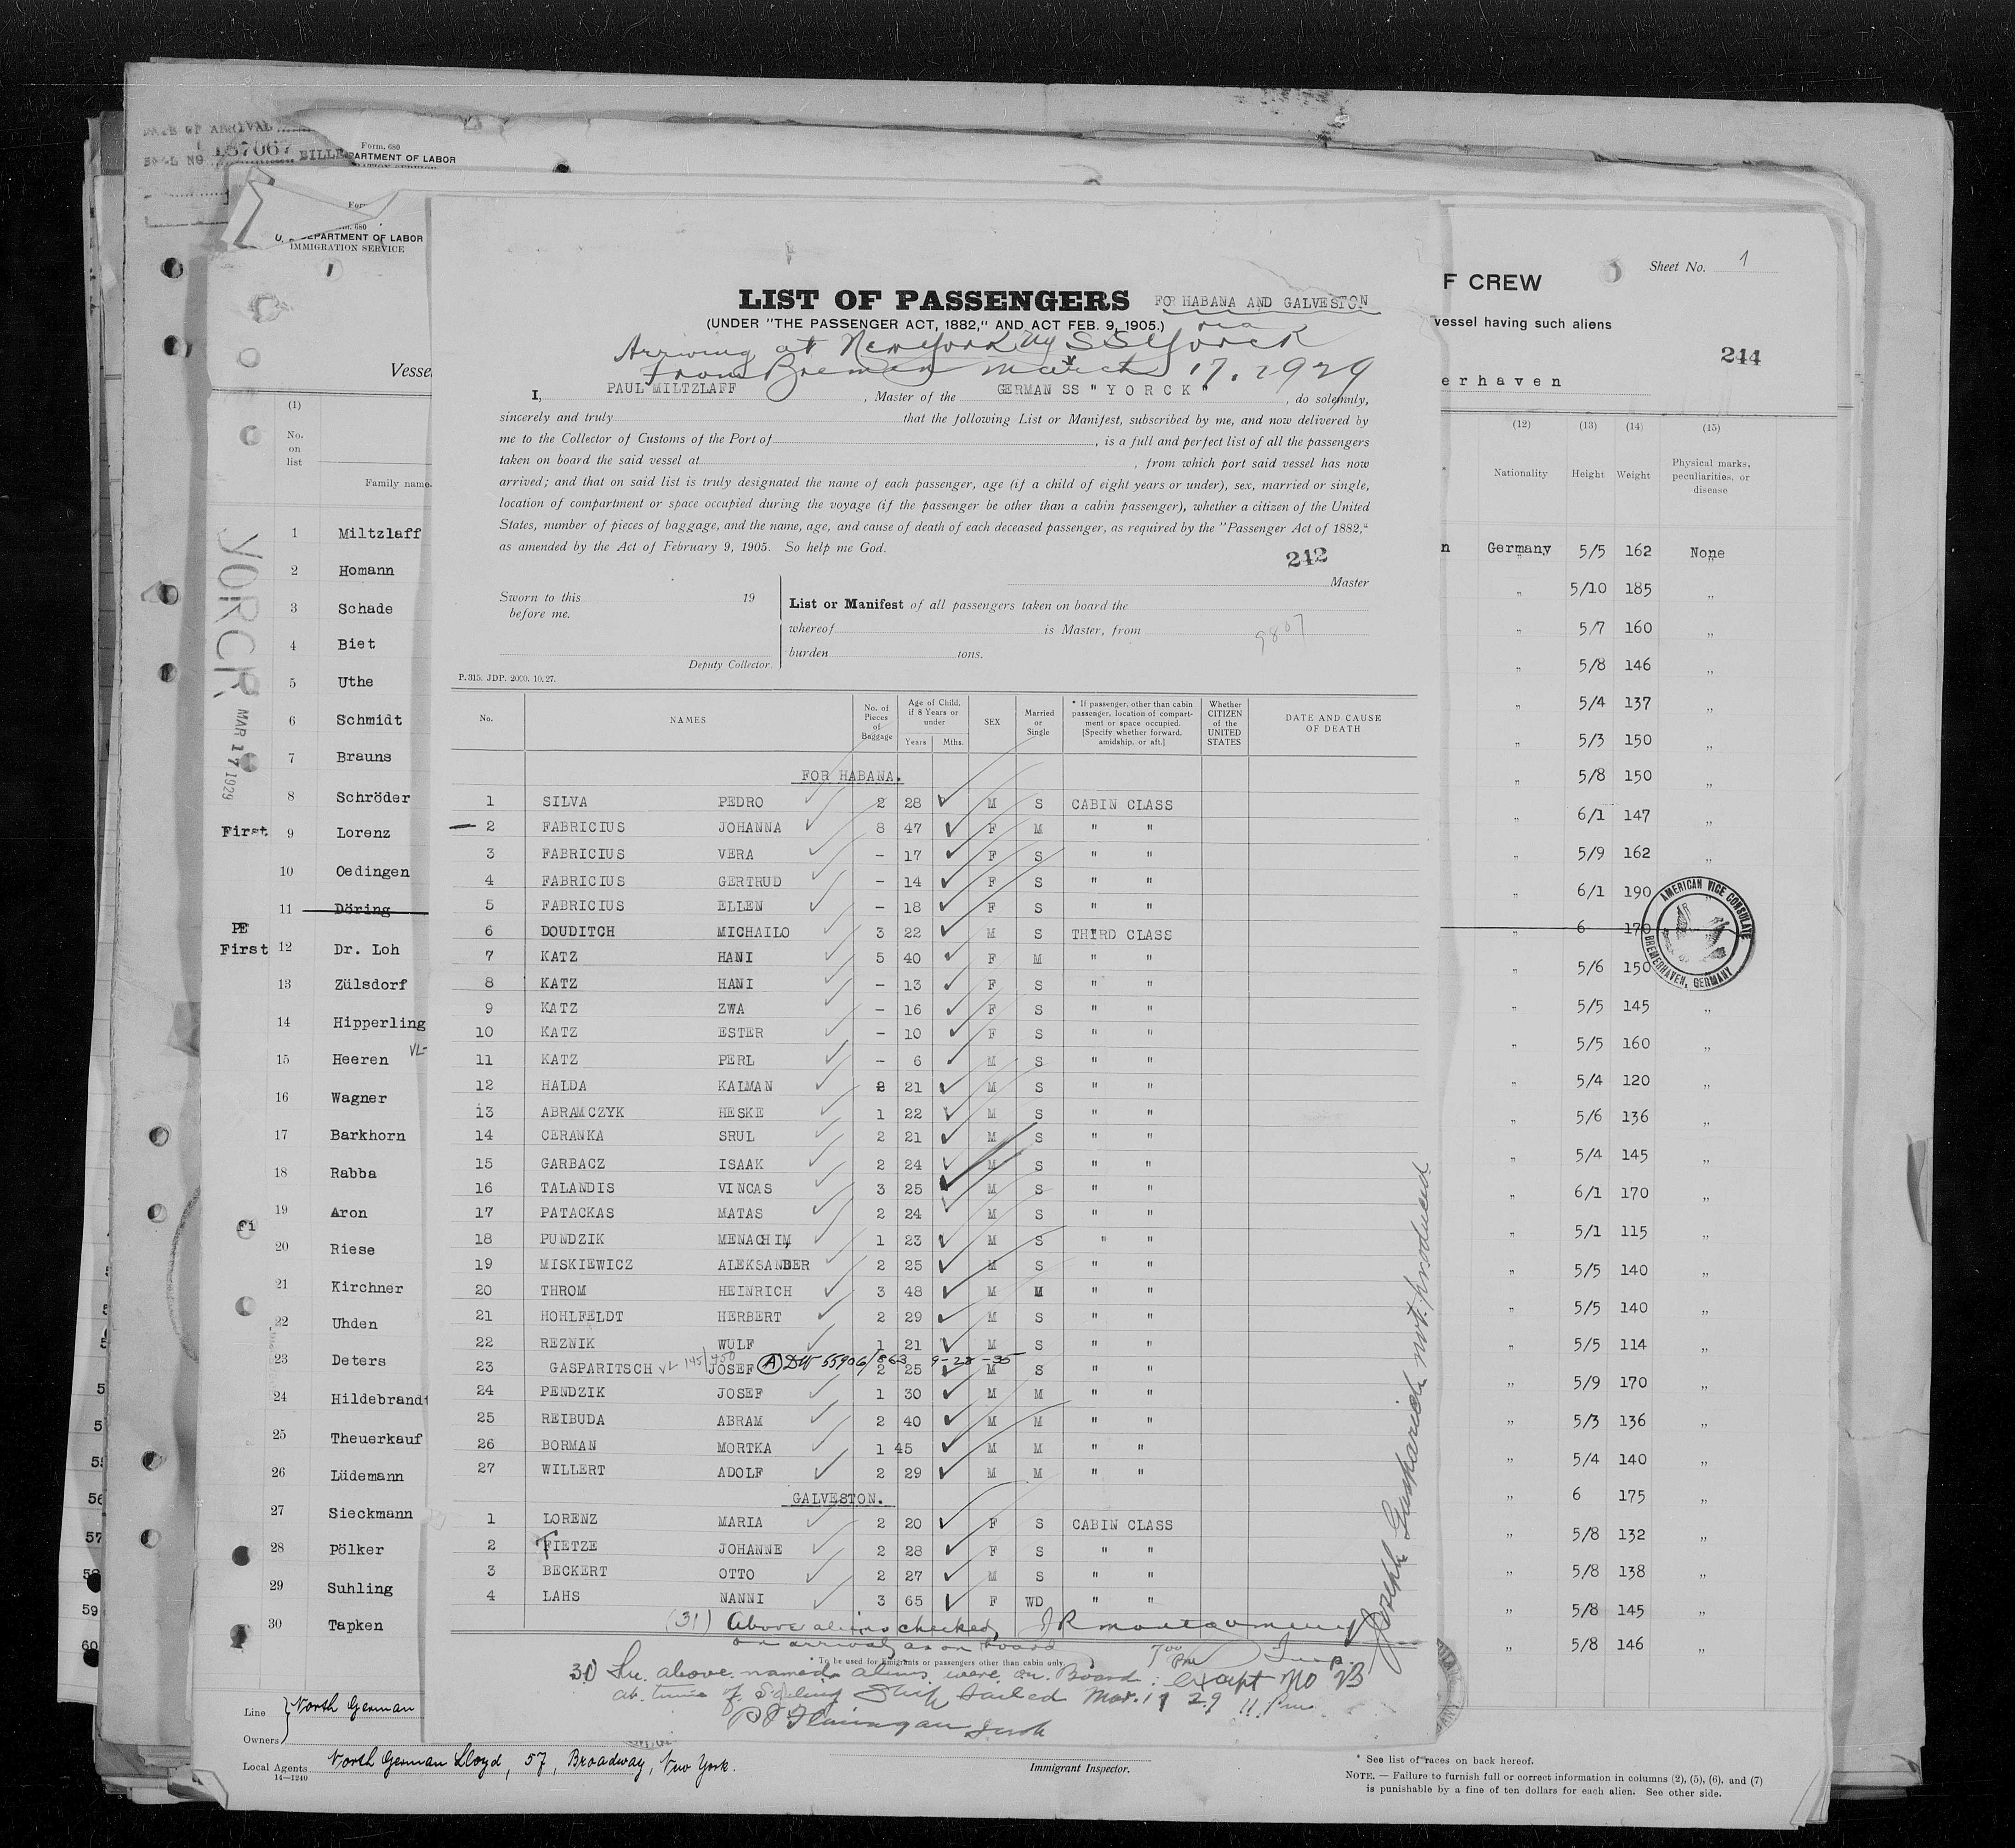 DATE OF ARRIVAL
187067
Form. 680
PARTMENT OF LABOR
Form. 680
U. S. DEPARTMENT OF LABOR
IMMIGRATION SERVICE
LIST OF PASSENGERS FOR HABANA AND GALVESTON
(UNDER "THE PASSENGER ACT, 1882," AND ACT FEB. 9, 1905.) via
Arriving at New York by SS Yorck
From Bremen March 17. 1929
I, PAUL MILTZLAFF , Master of the GERMAN SS " Y O R C K " , do solemnly,
sincerely and truly that the following List or Manifest, subscribed by me, and now delivered by
me to the Collector of Customs of the Port of , is a full and perfect list of all the passengers
taken on board the said vessel at , from which port said vessel has now
arrived; and that on said list is truly designated the name of each passenger, age (if a child of eight years or under), sex, married or single,
location of compartment or space occupied during the voyage (if the passenger be other than a cabin passenger), whether a citizen of the United
States, number of pieces of baggage, and the name, age, and cause of death of each deceased passenger, as required by the "Passenger Act of 1882,"
as amended by the Act of February 9, 1905. So help me God.
242
Master
Sworn to this 19
before me.
Deputy Collector.
List or Manifest of all passengers taken on board the
whereof is Master, from 9807
burden tons.
P. 315. JDP. 2000. 10. 27.
No. NAMES No. of Pieces of Baggage Age of Child, if 8 Years or under Years Mths. SEX Married or Single * If passenger, other than cabin passenger, location of compartment or space occupied. [Specify whether forward, amidship, or aft.] Whether CITIZEN of the UNITED STATES DATE AND CAUSE OF DEATH
FOR HABANA.
1 SILVA PEDRO 2 28 M S CABIN CLASS
2 FABRICIUS JOHANNA 8 47 F M " "
3 FABRICIUS VERA - 17 F S " "
4 FABRICIUS GERTRUD - 14 F S " "
5 FABRICIUS ELLEN - 18 F S " "
6 DOUDITCH MICHAILO 3 22 M S THIRD CLASS
7 KATZ HANI 5 40 F M " "
8 KATZ HANI - 13 F S " "
9 KATZ ZWA - 16 F S " "
10 KATZ ESTER - 10 F S " "
11 KATZ PERL - 6 M S " "
12 HALDA KALMAN 2 21 M S " "
13 ABRAMCZYK HESKE 1 22 M S " "
14 CERANKA SRUL 2 21 M S " "
15 GARBACZ ISAAK 2 24 M S " "
16 TALANDIS VINCAS 3 25 M S " "
17 PATACKAS MATAS 2 24 M S " "
18 PUNDZIK MENACHIM 1 23 M S " "
19 MISKIEWICZ ALEKSANDER 2 25 M S " "
20 THROM HEINRICH 3 48 M M " "
21 HOHLFELDT HERBERT 2 29 M S " "
22 REZNIK WULF 1 21 M S " "
23 GASPARITSCH VL 145/450 JOSEF (A) DW 55906/863 9-28-35 2 25 M S " "
24 PENDZIK JOSEF 1 30 M M " "
25 REIBUDA ABRAM 2 40 M M " "
26 BORMAN MORTKA 1 45 M M " "
27 WILLERT ADOLF 2 29 M M " "
GALVESTON.
1 LORENZ MARIA 2 20 F S CABIN CLASS
2 FIETZE JOHANNE 2 28 F S " "
3 BECKERT OTTO 2 27 M S " "
4 LAHS NANNI 3 65 F WD " "
(31) Above aliens checked, J R Montgomery
on arrival as on board 7 00 Pm Insp.
* To be used for Emigrants or passengers other than cabin only.
30 The above named aliens were on Board : except No 23
at time of Sailing Ship sailed Mar. 17 29 11 Pm
Joseph Gasparich not produced
Vessel
(1)
No. on list
Family name
YORCK MAR 17 1929
1 Miltzlaff
2 Homann
3 Schade
4 Biet
5 Uthe
6 Schmidt
7 Brauns
8 Schröder
First 9 Lorenz
10 Oedingen
11 Döring
PE
First 12 Dr. Loh
13 Zülsdorf
14 Hipperling
15 Heeren VL-
16 Wagner
17 Barkhorn
18 Rabba
Fi 19 Aron
20 Riese
21 Kirchner
22 Uhden
23 Deters
24 Hildebrandt
25 Theuerkauf
26 Lüdemann
27 Sieckmann
28 Pölker
29 Suhling
30 Tapken
56
57
58
59
60
F CREW
Sheet No. 1
vessel having such aliens
244
erhaven
(12) (13) (14) (15)
Nationality Height Weight Physical marks, peculiarities, or disease
n Germany 5/5 162 None
" 5/10 185 "
" 5/7 160 "
" 5/8 146 "
" 5/4 137 "
" 5/3 150 "
" 5/8 150 "
" 6/1 147 "
" 5/9 162 "
" 6/1 190
" 6 170
" 5/6 150
" 5/5 145 "
" 5/5 160 "
" 5/4 120 "
" 5/6 136 "
" 5/4 145 "
" 6/1 170 "
" 5/1 115 "
" 5/5 140 "
" 5/5 140 "
" 5/5 114 "
" 5/9 170 "
" 5/3 136 "
" 5/4 140 "
" 6 175 "
" 5/8 132 "
" 5/8 138 "
" 5/8 145 "
" 5/8 146 "
AMERICAN VICE CONSULATE
BREMERHAVEN, GERMANY
Line North German
Owners
Local Agents North German Lloyd, 57, Broadway, New York.
14—1240
Immigrant Inspector.
* See list of races on back hereof.
NOTE. — Failure to furnish full or correct information in columns (2), (5), (6), and (7)
is punishable by a fine of ten dollars for each alien. See other side.